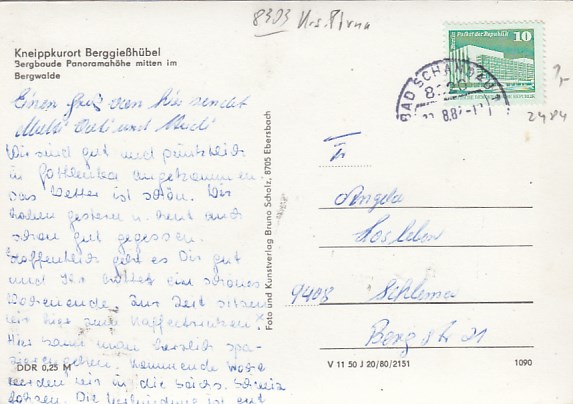 8303 Krs. Pirna
Kneippkurort Berggießhübel
Bergbaude Panoramahöhe mitten im
Bergwalde
Palast der Republik 10
DDR
BAD SCHANDAU 1
8320
2484
Einen Gruß von hier sendet
Mutti Vati und
Wir sind gut und pünktlich
in Gottleuba angekommen.
Das Wetter ist schön. Wir
haben gestern u. heut auch
schon gut gegessen.
Hoffentlich geht es Dir gut
und Ihr hattet ein schönes
Wochenende. Zur Zeit sitzen
wir hier zum Kaffeetrinken.
Hier kann man herrlich spa-
zierengehen. Kommende Woche
werden wir in die Sächs. Schweiz
fahren. Die Verbindung ist gut
DDR 0,25 M
Foto und Kunstverlag Bruno Scholz, 8705 Ebersbach
Angela
9408 Schlema
Bergstr 21
V 11 50 J 20/80/2151
1090